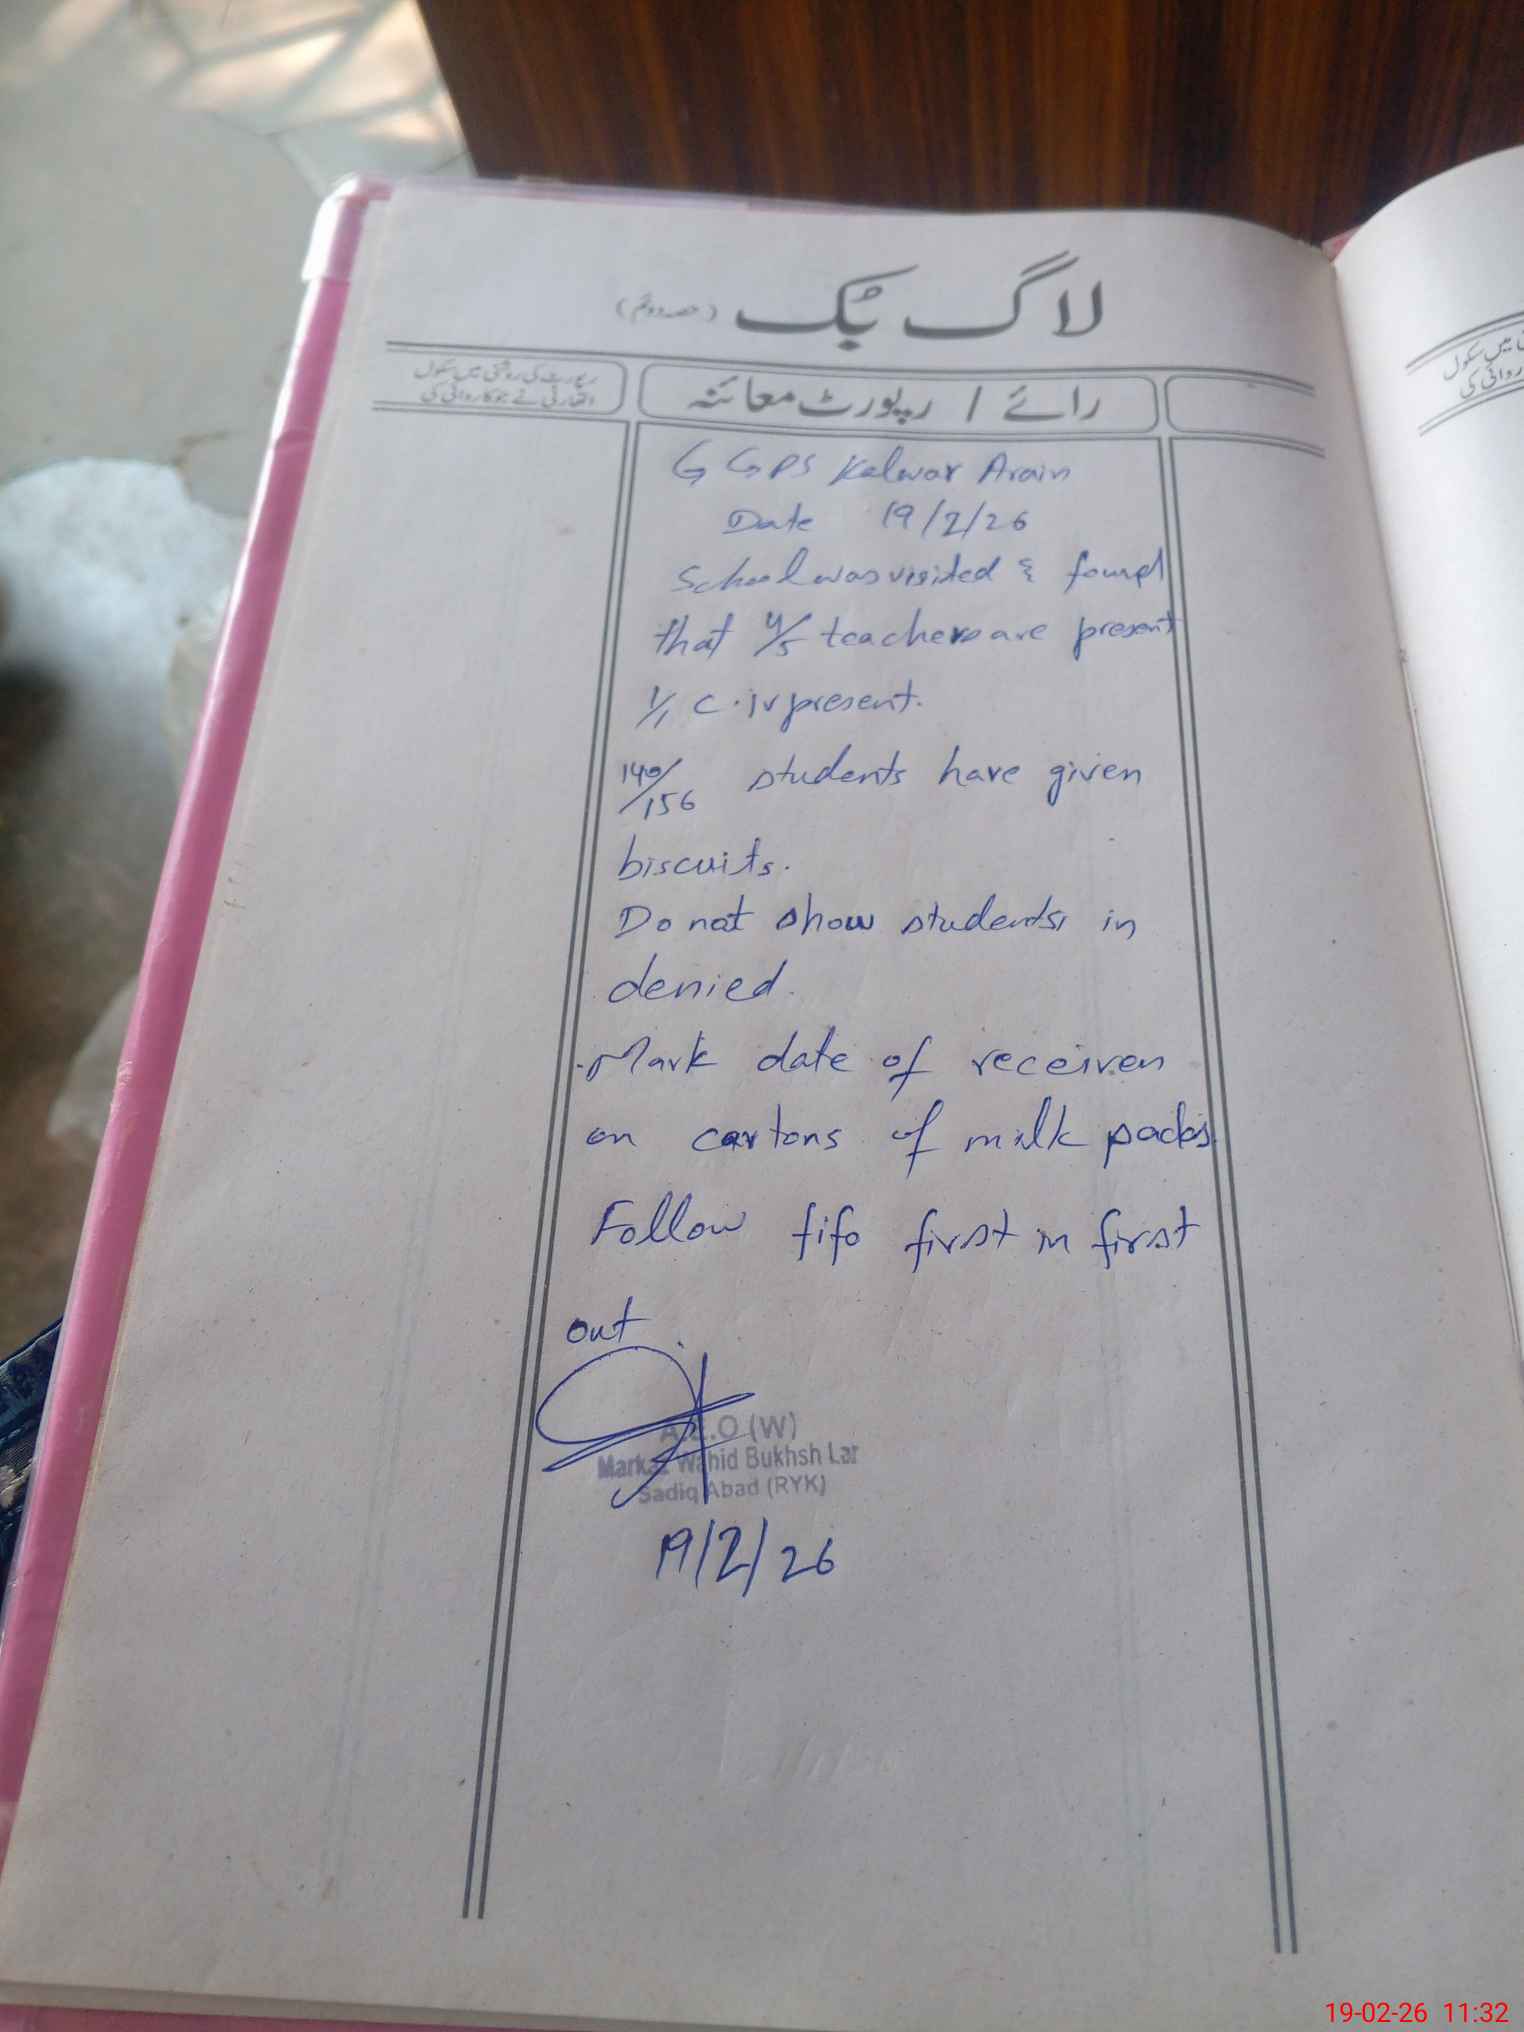 لاگ بک (حصہ دوئم)
رائے / رپورٹ معائنہ
رپورٹ کی روشنی میں سکول
اتھارٹی نے جو کاروائی کی
G GPS Kalwar Arain
Date 19/2/26
School was visited & found
that 4/5 teachers are present
1/1 C.iv present.
140/156 students have given
biscuits.
Do not show students in
denied.
Mark date of receiven
on cartons of milk packs.
Follow fifo first in first
out.
A.E.O (W)
Markaz Wahid Bukhsh Lar
Sadiq Abad (RYK)
19/2/26
میں سکول
روائی کی
19-02-26 11:32